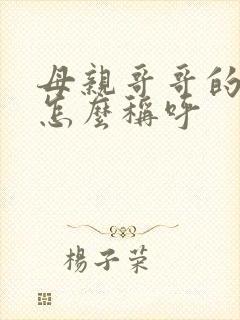 母親哥哥的
怎麼稱呼
楊子荣